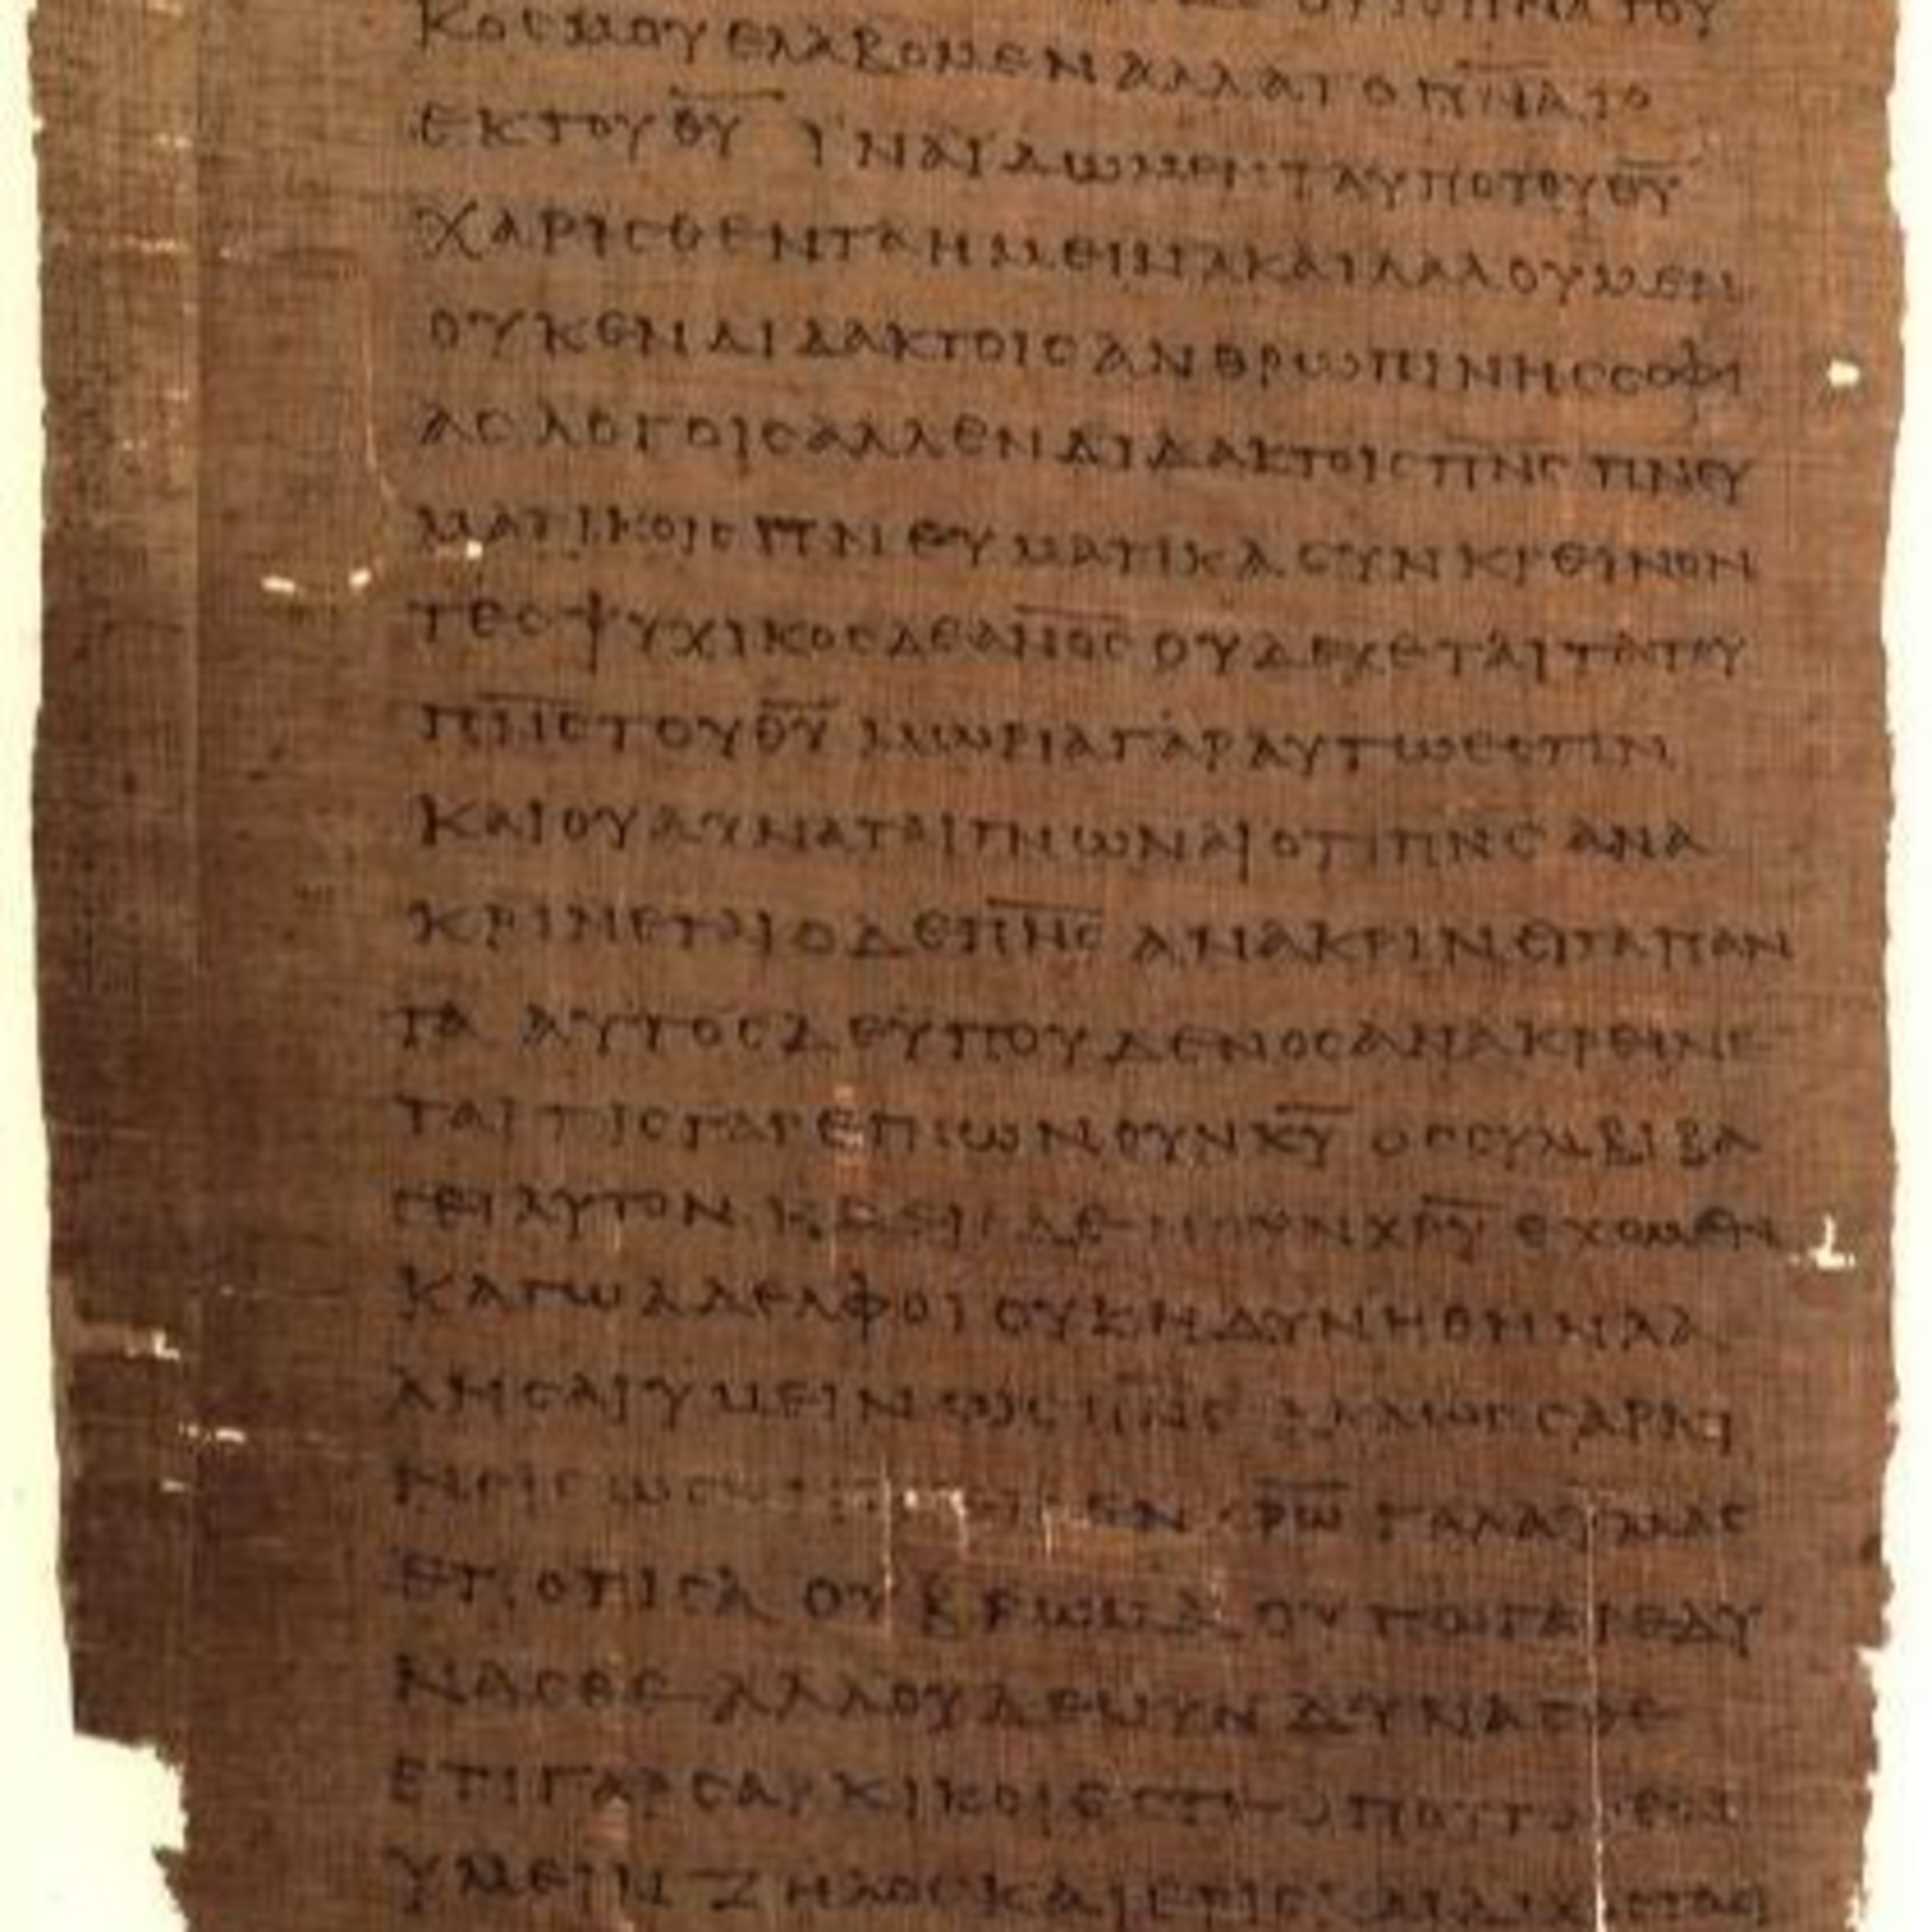 ΤΟΥ
ΚΟϹΜΟΥΕΛΑΒΟΜΕΝΑΛΛΑΤΟΠ̅Ν̅Α̅ΤΟ
ΕΚΤΟΥΘ̅Υ̅ ΪΝΑΪΔΩΜΕΝΤΑΥΠΟΤΟΥΘ̅Υ̅
ΧΑΡΙϹΘΕΝΤΑΗΜΕΙΝΑΚΑΙΛΑΛΟΥΜΕΝ
ΟΥΚΕΝΔΙΔΑΚΤΟΙϹΑΝΘΡΩΠΙΝΗϹϹΟΦΙ
ΑϹΛΟΓΟΙϹΑΛΛΕΝΔΙΔΑΚΤΟΙϹΠ̅Ν̅Ϲ̅ ΠΝΕΥ
ΜΑΤΙΚΟΙϹΠΝΕΥΜΑΤΙΚΑϹΥΝΚΡΕΙΝΟΝ
ΤΕϹΨΥΧΙΚΟϹΔΕΑ̅Ν̅Ο̅Ϲ̅ ΟΥΔΕΧΕΤΑΙΤΑΤΟΥ
Π̅Ν̅Ϲ̅ΤΟΥΘ̅Υ̅ ΜΩΡΙΑΓΑΡΑΥΤΩΕϹΤΙΝ
ΚΑΙΟΥΔΥΝΑΤΑΙΓΝΩΝΑΙΟΤΙΠΝϹ ΑΝΑ
ΚΡΙΝΕΤΑΙΟΔΕΠ̅Ν̅Ϲ̅ ΑΝΑΚΡΙΝΕΙΤΑΠΑΝ
ΤΑ ΑΥΤΟϹΔΕΥΠΟΥΔΕΝΟϹΑΝΑΚΡΕΙΝΕ
ΤΑΙΤΙϹΓΑΡΕΓΝΩΝΟΥΝΚ̅Υ̅ ΟϹϹΥΝΒΙΒΑ
ϹΕΙΑΥΤΟΝ ΔΕ ΝΟΥΝΧ̅Ρ̅Υ̅ ΕΧΟΜΕΝ
ΚΑΓΩΑΔΕΛΦΟΙΟΥΚΗΔΥΝΗΘΗΝΛΑ
ΛΗϹΑΙΥΜΕΙΝΩϹΠ̅Ν̅Ϲ̅ ΑΛΛΩϹϹΑΡΚΙ
ΝΟΙϹ ΕΝ Χ̅Ρ̅Ω̅ ΓΑΛΑΫΜΑϹ
ΕΠΟΤΙϹΑ ΟΥΒΡΩΜΑ ΟΥΠΩΓΑΡΕΔΥ
ΝΑϹΘΕ ΑΛΛΟΥΔΕΝΥΝΔΥΝΑϹΘΕ
ΕΤΙΓΑΡϹΑΡΚΙΚΟΙΕϹΤΕΟΠΟΥΓΑΡΕΝ
ΥΜΕΙΝΖΗΛΟϹΚΑΙΕΡΙϹ